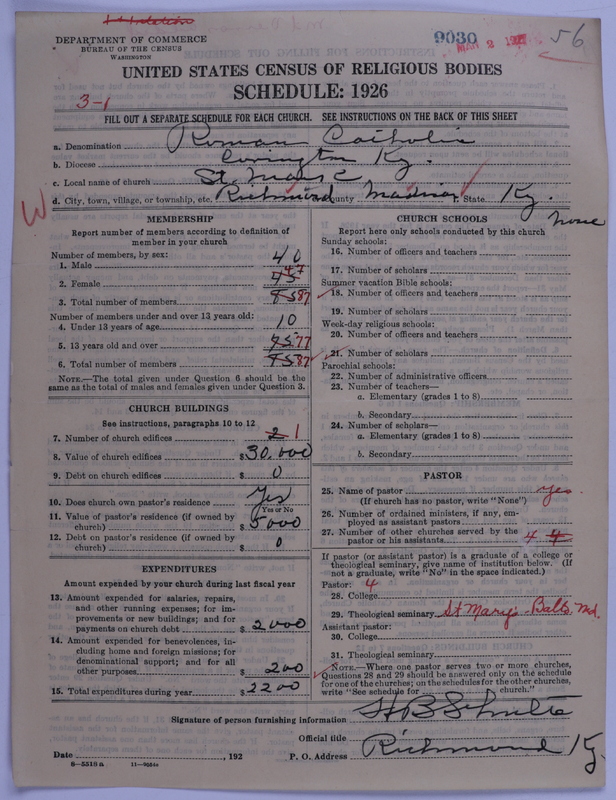 DEPARTMENT OF COMMERCE
BUREAU OF THE CENSUS
WASHINGTON
9030
MAR 2
56
UNITED STATES CENSUS OF RELIGIOUS BODIES
SCHEDULE: 1926
3-1
FILL OUT A SEPARATE SCHEDULE FOR EACH CHURCH. SEE INSTRUCTIONS ON THE BACK OF THIS SHEET
a. Denomination Roman Catholic
b. Diocese Covington Ky.
c. Local name of church St.
d. City, town, village, or township, etc. Richmond County Madison State Ky.
W
MEMBERSHIP
Report number of members according to definition of
member in your church
Number of members, by sex:
1. Male 40
2. Female 45 47
3. Total number of members 85 87
Number of members under and over 13 years old:
4. Under 13 years of age 10
5. 13 years old and over 75 77
6. Total number of members 85 87
NOTE.—The total given under Question 6 should be the
same as the total of males and females given under Question 3.
CHURCH BUILDINGS
See instructions, paragraphs 10 to 12
7. Number of church edifices 2 1
8. Value of church edifices $30.000
9. Debt on church edifices $ 0
10. Does church own pastor's residence Yes
Yes or No
11. Value of pastor's residence (if owned by
church) $ 5000
12. Debt on pastor's residence (if owned by
church) $ 0
EXPENDITURES
Amount expended by your church during last fiscal year
13. Amount expended for salaries, repairs,
and other running expenses; for im-
provements or new buildings; and for
payments on church debt $ 2000
14. Amount expended for benevolences, in-
cluding home and foreign missions; for
denominational support; and for all
other purposes 200
15. Total expenditures during year $ 2200
CHURCH SCHOOLS
Report here only schools conducted by this church
none
Sunday schools:
16. Number of officers and teachers
17. Number of scholars
Summer vacation Bible schools:
18. Number of officers and teachers
19. Number of scholars
Week-day religious schools:
20. Number of officers and teachers
21. Number of scholars
Parochial schools:
22. Number of administrative officers
23. Number of teachers—
a. Elementary (grades 1 to 8)
b. Secondary
24. Number of scholars—
a. Elementary (grades 1 to 8)
b. Secondary
PASTOR
25. Name of pastor yes.
(If church has no pastor, write "None")
26. Number of ordained ministers, if any, em-
ployed as assistant pastors
27. Number of other churches served by the
pastor or his assistants 4 4
If pastor (or assistant pastor) is a graduate of a college or
theological seminary, give name of institution below. (If
not a graduate, write "No" in the space indicated.)
Pastor: 4
28. College
29. Theological seminary St Mary's Balto, Md.
Assistant pastor:
30. College
31. Theological seminary
NOTE.—Where one pastor serves two or more churches,
Questions 28 and 29 should be answered only on the schedule
for one of the churches; on the schedules for the other churches,
write "See schedule for church."
Signature of person furnishing information H B Schulte
Official title
Date , 192 P. O. Address Richmond Ky.
8-5518a 11-9034a